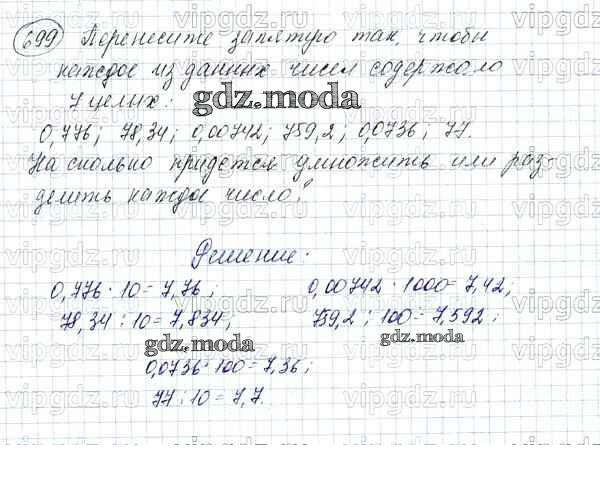 699 Перенесите запятую так, чтобы
каждое из данных чисел содержало
7 целых:
gdz.moda
0,776; 78,34; 0,00742; 759,2; 0,0736; 77.
На сколько придется умножить или раз-
делить каждое число?
Решение:
0,776 · 10 = 7,76; 0,00742 · 1000 = 7,42;
78,34 : 10 = 7,834; 759,2 : 100 = 7,592;
gdz.moda gdz.moda
0,0736 · 100 = 7,36;
77 : 10 = 7,7.